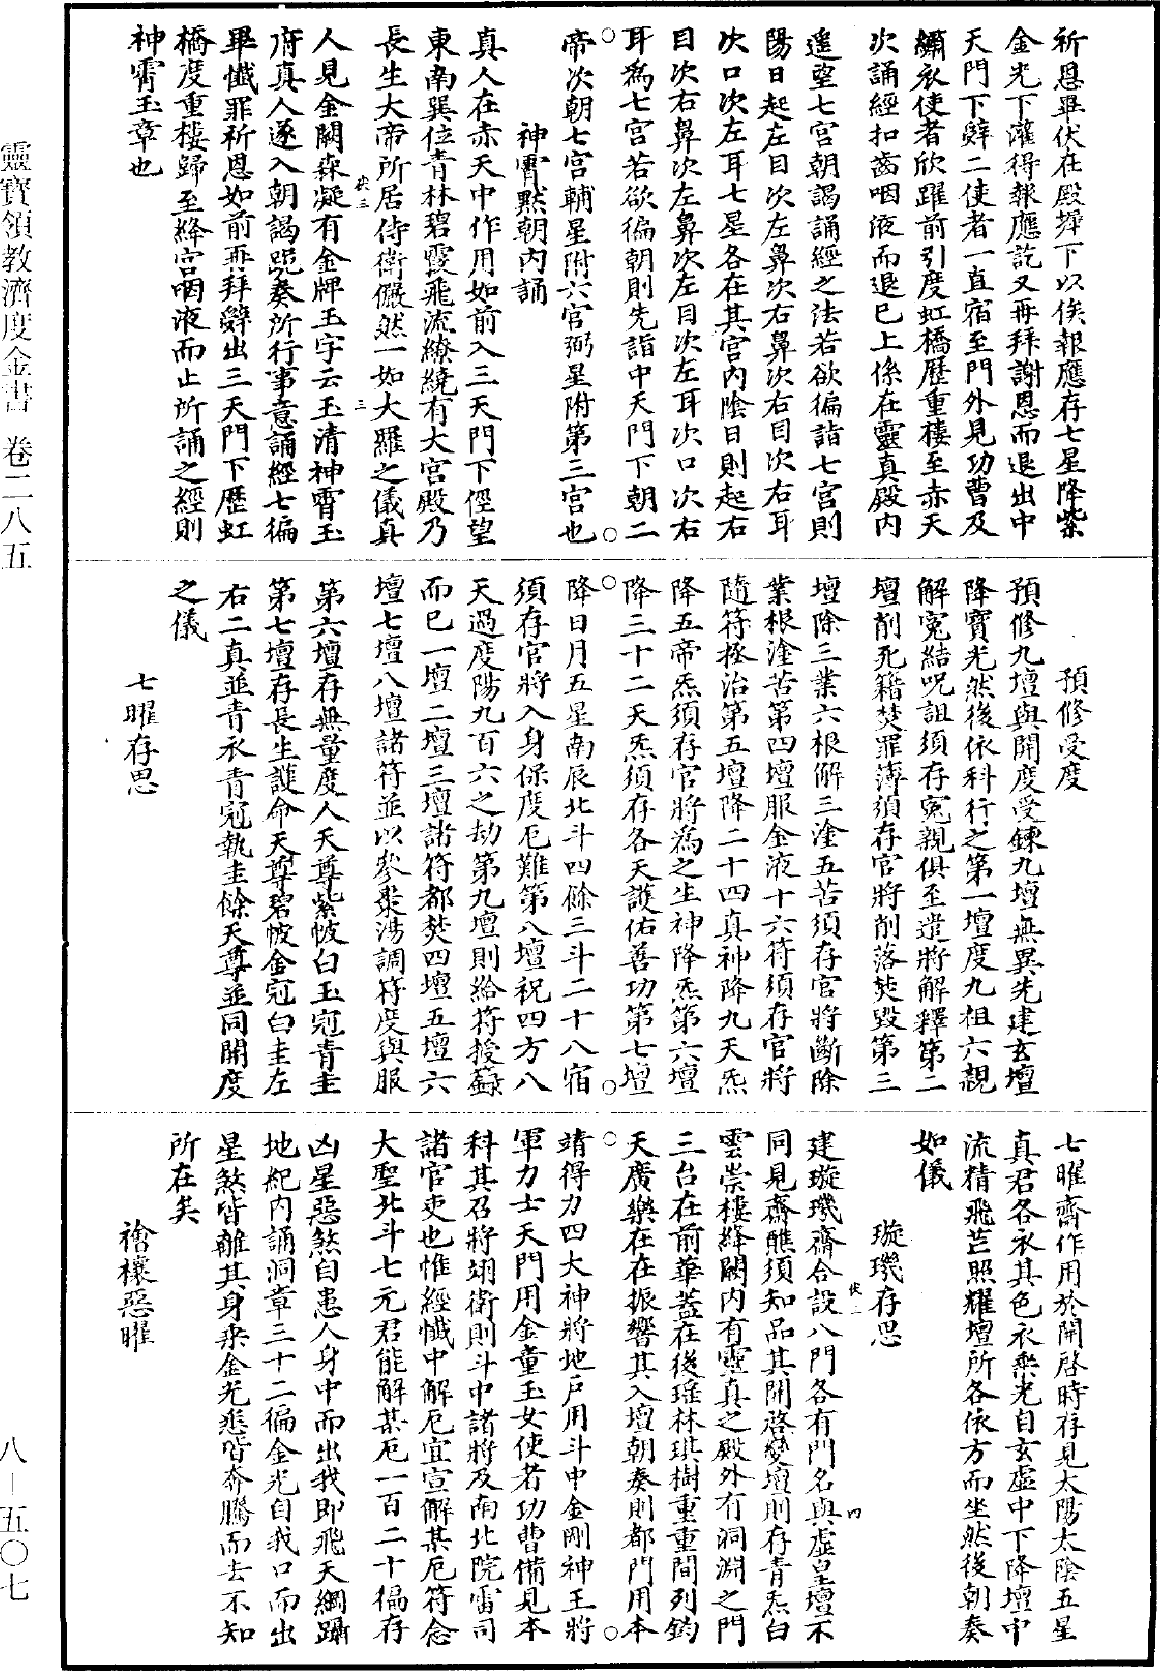 祈恩畢伏在殿墀下以俟報應存七星降紫
金光下灌得報應訖又再拜謝恩而退出中
天門下辭二使者一直宿至門外見功曹及
繡衣使者欣躍前引度虹橋歷重樓至赤天
次誦經扣齒咽液而退已上係在靈真殿內
遙望七宮朝謁誦經之法若欲徧詣七宮則
陽日起左目次左鼻次右鼻次右目次右耳
次口次左耳七星各在其宮內陰日則起右
目次右鼻次左鼻次左目次左耳次口次右
耳為七宮若欲徧朝則先詣中天門下朝二
帝次朝七宮輔星附六宮弼星附第三宮也
神霄默朝內誦
真人在赤天中作用如前入三天門下俓望
東南巽位青林碧霞飛流繚繞有大宮殿乃
長生大帝所居侍衛儼然一如大羅之儀真
人見金闕森凝有金牌玉字云玉清神霄玉
府真人遂入朝謁跪奏所行事意誦經七徧
畢懺罪祈恩如前再拜辭出三天門下歷虹
橋度重樓歸至絳宮咽液而止所誦之經則
神霄玉章也
預修受度
預修九壇與開度受鍊九壇無異先建玄壇
降寶光然後依科行之第一壇度九祖六親
解冤結呪詛須存冤親俱至遣將解釋第二
壇削死籍焚罪簿須存官將削落焚毀第三
壇除三業六根解三塗五苦須存官將斷除
業根塗苦第四壇服金液十六符須存官將
隨符拯治第五壇降二十四真神降九天炁
降五帝炁須存官將為之生神降炁第六壇
降三十二天炁須存各天護佑善功第七壇
降日月五星南辰北斗四餘三斗二十八宿
須存官將入身保度厄難第八壇祝四方八
天過度陽九百六之劫第九壇則給符授籙
而已一壇二壇三壇諸符都焚四壇五壇六
壇七壇八壇諸符並以參棗湯調符度與服
第六壇存無量度人天尊紫帔白玉冠青圭
第七壇存長生護命天尊碧帔金冠白圭左
右二真並青衣青冠執圭餘天尊並同開度
之儀
七曜存思
七曜齋作用於開啓時存見太陽太陰五星
真君各衣其色衣乘光自玄虛中下降壇中
流精飛芒照耀壇所各依方而坐然後朝奏
如儀
璇璣存思
建璇璣齋合設八門各有門名與虛皇壇不
同見齋醮須知品其開啓變壇則存青炁白
雲崇樓絳闕內有靈真之殿外有洞淵之門
三台在前華蓋在後瑤林琪樹重重間列鈞
天廣樂在在振響其入壇朝奏則都門用本
靖得力四大神將地戶用斗中金剛神王將
軍力士天門用金童玉女使者功曹備見本
科其召將翊衛則斗中諸將及南北院雷司
諸官吏也惟經懺中解厄宜宣解某厄符念
大聖北斗七元君能解某厄一百二十徧存
凶星惡煞自患人身中而出我即飛天綱躡
地紀內誦洞章三十二徧金光自我口而出
星煞皆離其身乘金光悉皆奔騰而去不知
所在矣
禬禳惡曜
靈寶領教濟度金書 卷二八五
八—五〇七